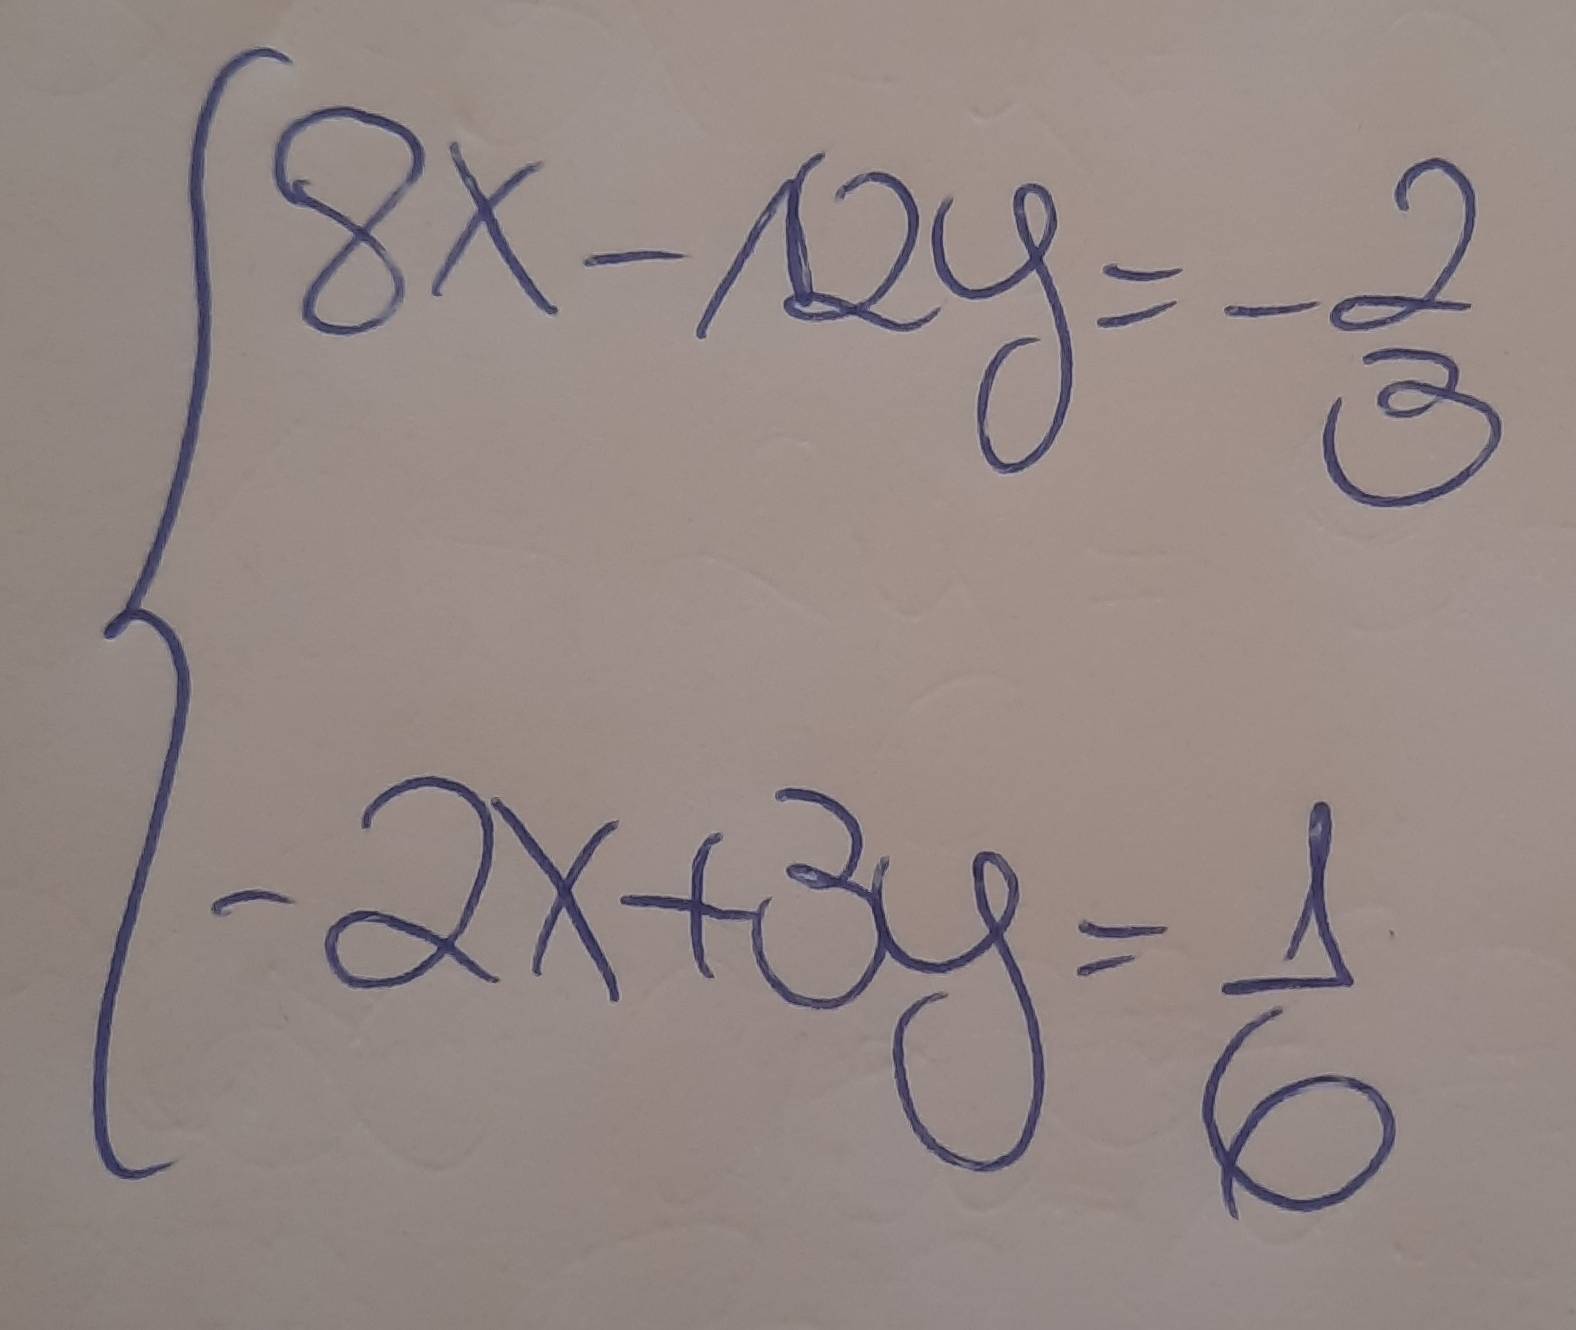 8x - 12y = -2/3
-2x + 3y = 1/6